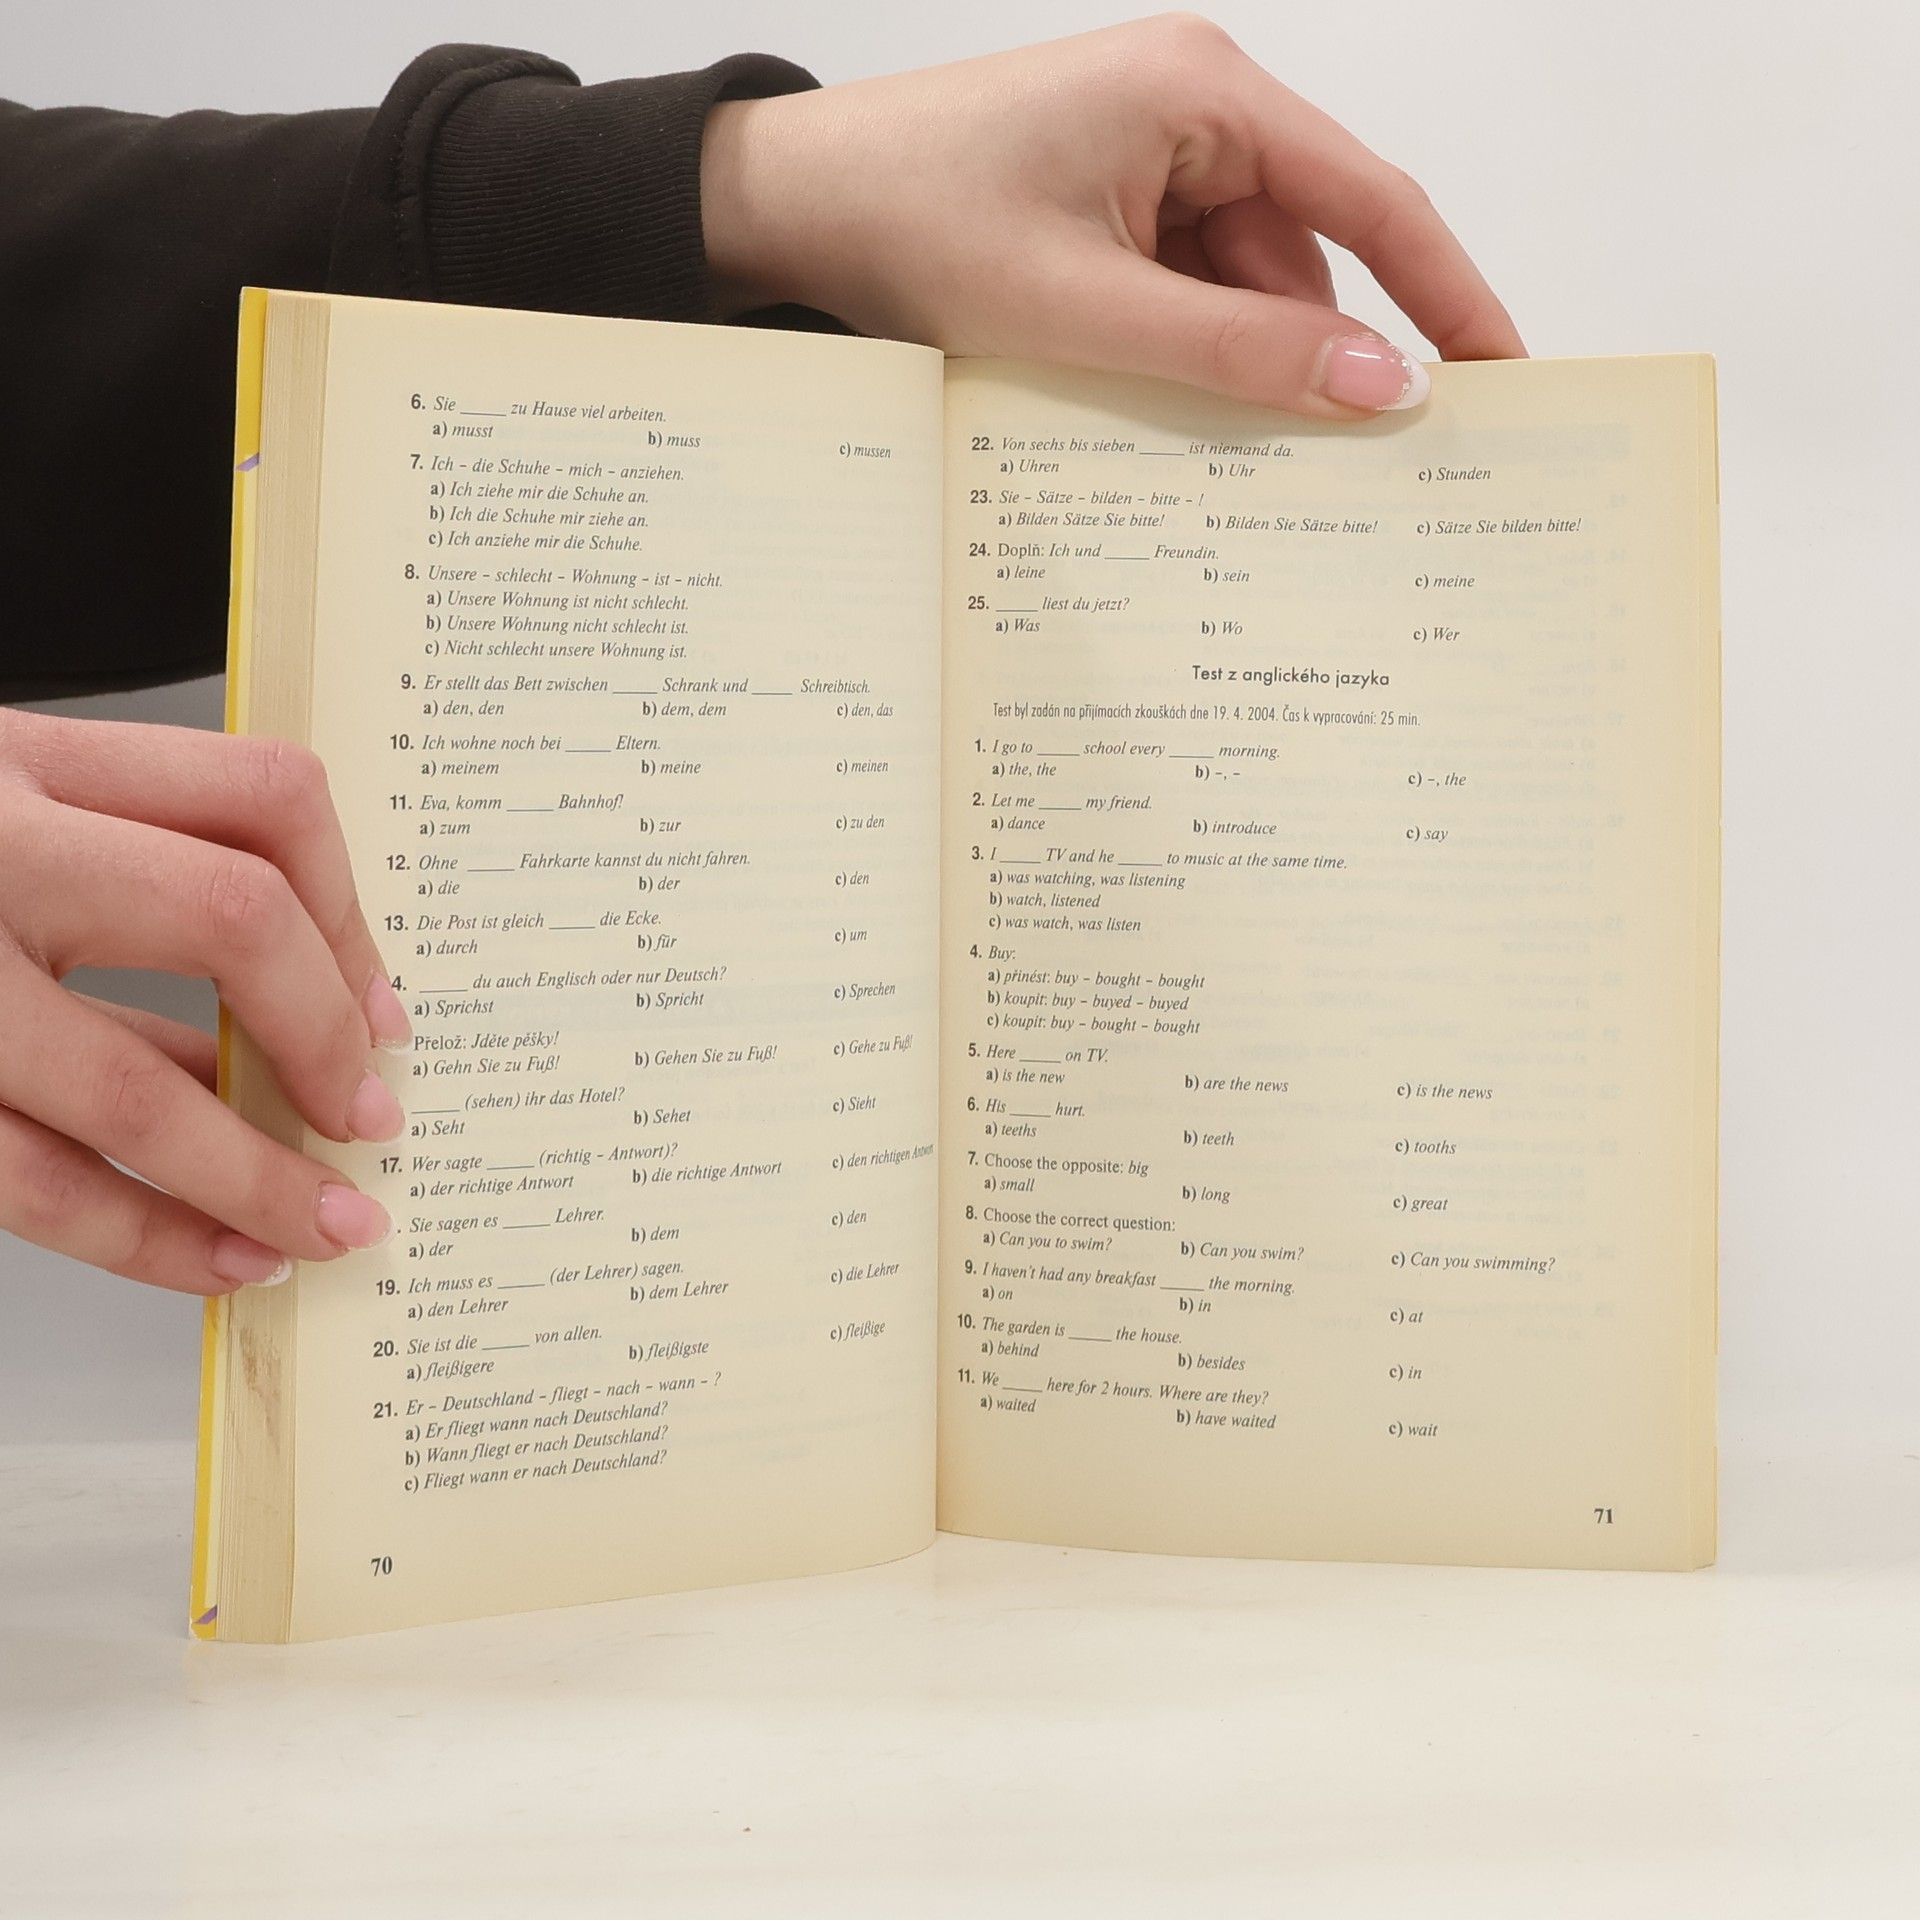 6. Sie _____ zu Hause viel arbeiten.
a) musst b) muss c) mussen
7. Ich – die Schuhe – mich – anziehen.
a) Ich ziehe mir die Schuhe an.
b) Ich die Schuhe mir ziehe an.
c) Ich anziehe mir die Schuhe.
8. Unsere – schlecht – Wohnung – ist – nicht.
a) Unsere Wohnung ist nicht schlecht.
b) Unsere Wohnung nicht schlecht ist.
c) Nicht schlecht unsere Wohnung ist.
9. Er stellt das Bett zwischen _____ Schrank und _____ Schreibtisch.
a) den, den b) dem, dem c) den, das
10. Ich wohne noch bei _____ Eltern.
a) meinem b) meine c) meinen
11. Eva, komm _____ Bahnhof!
a) zum b) zur c) zu den
12. Ohne _____ Fahrkarte kannst du nicht fahren.
a) die b) der c) den
13. Die Post ist gleich _____ die Ecke.
a) durch b) für c) um
4. _____ du auch Englisch oder nur Deutsch?
a) Sprichst b) Spricht c) Sprechen
Přelož: Jděte pěšky!
a) Gehn Sie zu Fuß! b) Gehen Sie zu Fuß! c) Gehe zu Fuß!
_____ (sehen) ihr das Hotel?
a) Seht b) Sehet c) Sieht
17. Wer sagte _____ (richtig – Antwort)?
a) der richtige Antwort b) die richtige Antwort c) den richtigen Antwort
. Sie sagen es _____ Lehrer.
a) der b) dem c) den
19. Ich muss es _____ (der Lehrer) sagen.
a) den Lehrer b) dem Lehrer c) die Lehrer
20. Sie ist die _____ von allen.
a) fleißigere b) fleißigste c) fleißige
21. Er – Deutschland – fliegt – nach – wann – ?
a) Er fliegt wann nach Deutschland?
b) Wann fliegt er nach Deutschland?
c) Fliegt wann er nach Deutschland?
70
22. Von sechs bis sieben _____ ist niemand da.
a) Uhren b) Uhr c) Stunden
23. Sie – Sätze – bilden – bitte – !
a) Bilden Sätze Sie bitte! b) Bilden Sie Sätze bitte! c) Sätze Sie bilden bitte!
24. Doplň: Ich und _____ Freundin.
a) leine b) sein c) meine
25. _____ liest du jetzt?
a) Was b) Wo c) Wer
Test z anglického jazyka
Test byl zadán na přijímacích zkouškách dne 19. 4. 2004. Čas k vypracování: 25 min.
1. I go to _____ school every _____ morning.
a) the, the b) –, – c) –, the
2. Let me _____ my friend.
a) dance b) introduce c) say
3. I _____ TV and he _____ to music at the same time.
a) was watching, was listening
b) watch, listened
c) was watch, was listen
4. Buy:
a) přinést: buy – bought – bought
b) koupit: buy – buyed – buyed
c) koupit: buy – bought – bought
5. Here _____ on TV.
a) is the new b) are the news c) is the news
6. His _____ hurt.
a) teeths b) teeth c) tooths
7. Choose the opposite: big
a) small b) long c) great
8. Choose the correct question:
a) Can you to swim? b) Can you swim? c) Can you swimming?
9. I haven't had any breakfast _____ the morning.
a) on b) in c) at
10. The garden is _____ the house.
a) behind b) besides c) in
11. We _____ here for 2 hours. Where are they?
a) waited b) have waited c) wait
71